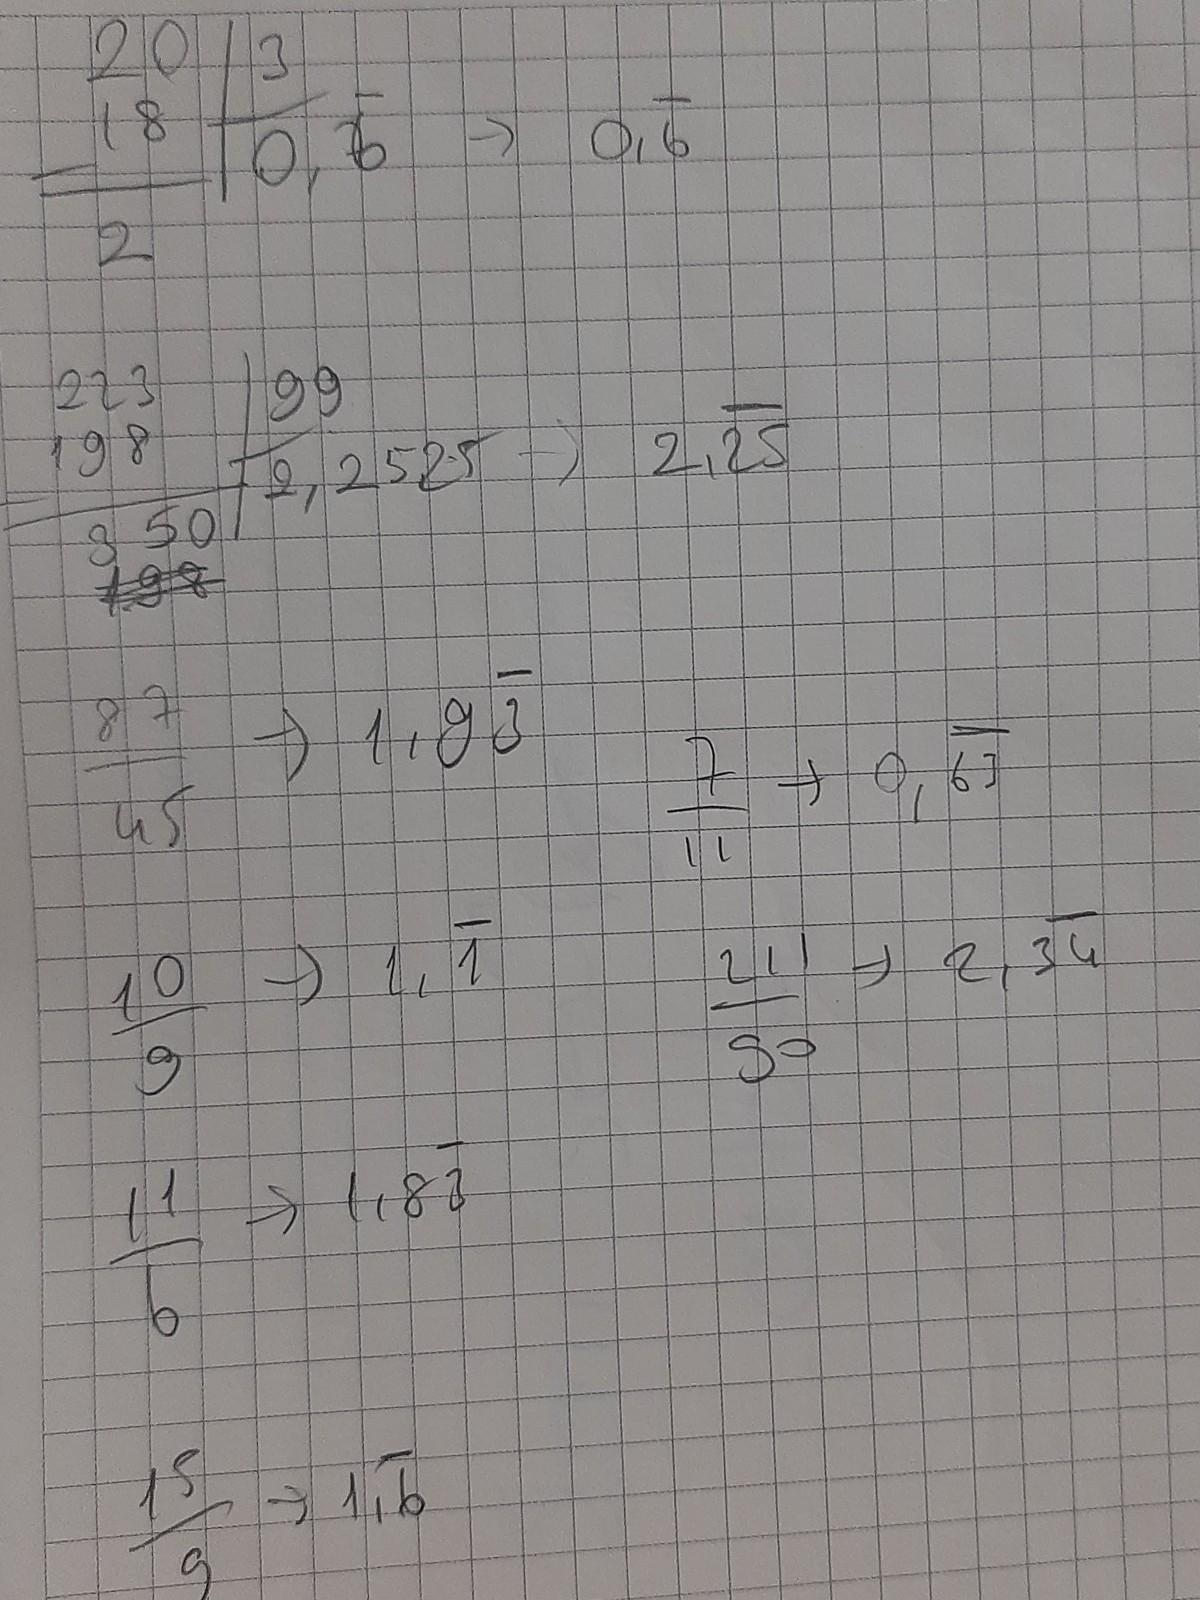 20 | 3
18 | 0,6̅ → 0,6̅
2
223 | 99
198 | 2,2525 → 2,2̅5̅
350
87/45 → 1,93̅
7/11 → 0,6̅3̅
10/9 → 1,1̅
211/90 → 2,34̅
11/6 → 1,83̅
15/9 → 1,6̅